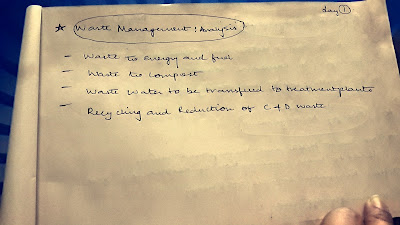 Day 1
* Waste Management : Analysis
- Waste to Energy and fuel
- Waste to compost
- Waste water to be transfered to treatment plants
- Recycling and Reduction of C & D waste